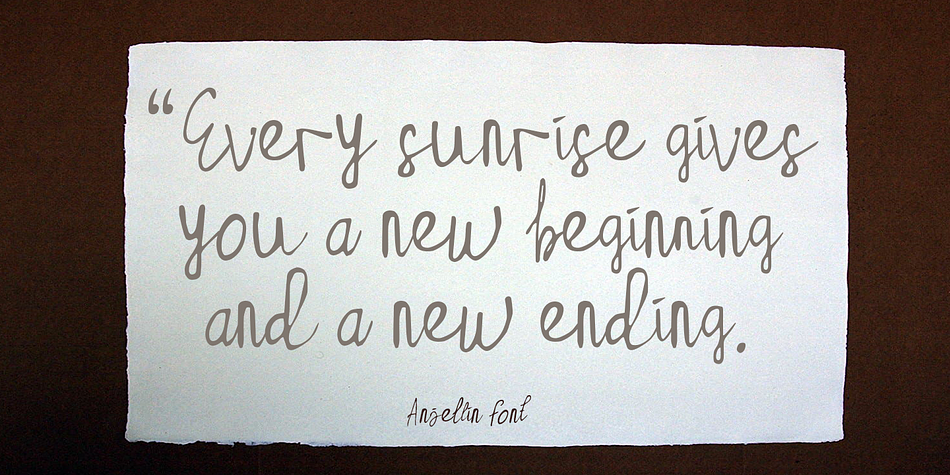 “Every sunrise gives
you a new beginning
and a new ending.
Angellin font